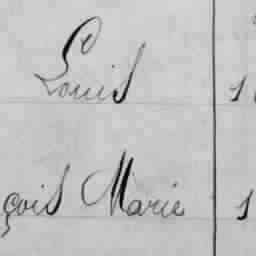 Louis 1
çois Marie 1